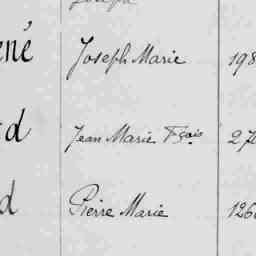 Joseph
ené Joseph Marie 198
d Jean Marie Fçois 27
d Pierre Marie 126